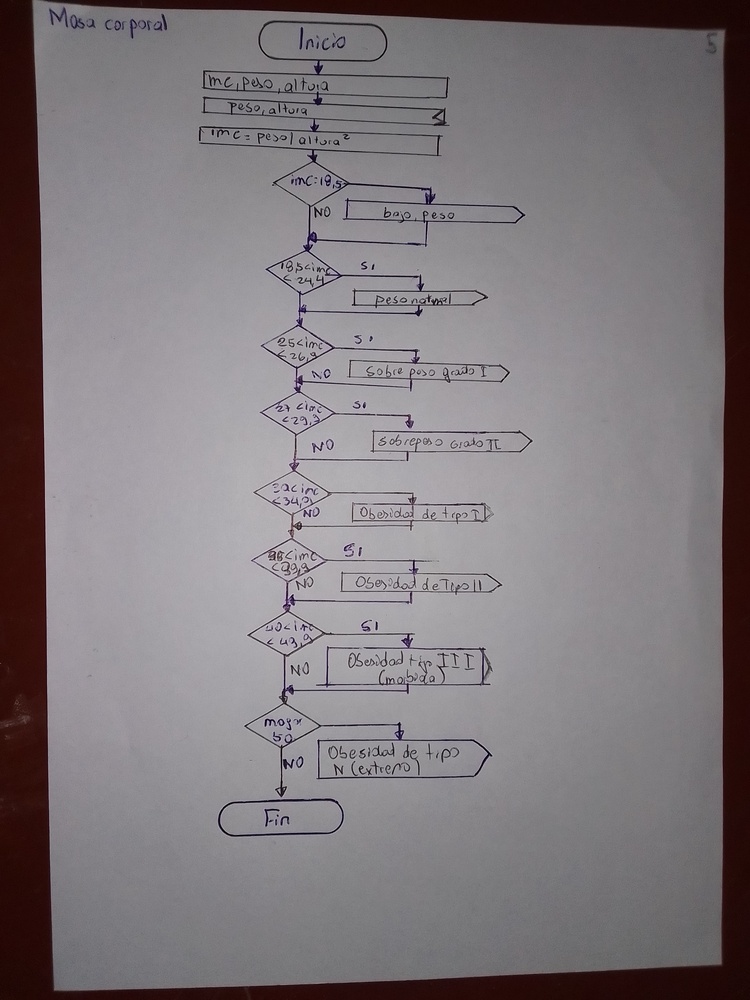 Masa corporal
5
Inicio
mc, peso, altura
peso, altura
imc = peso/altura²
imc=18,5
NO
bajo, peso
18,5<imc
<24,4
SI
peso natural
25<imc
<26,9
SI
NO
Sobre peso grado I
27<imc
<29,9
SI
NO
Sobrepeso Grado II
<imc
<34,9
NO
Obesidad de tipo I
<imc
<39,9
SI
NO
Obesidad de Tipo II
40<imc
<43,9
SI
NO
Obesidad tipo III
(morbida)
50
NO
Obesidad de tipo
N (extremo)
Fin